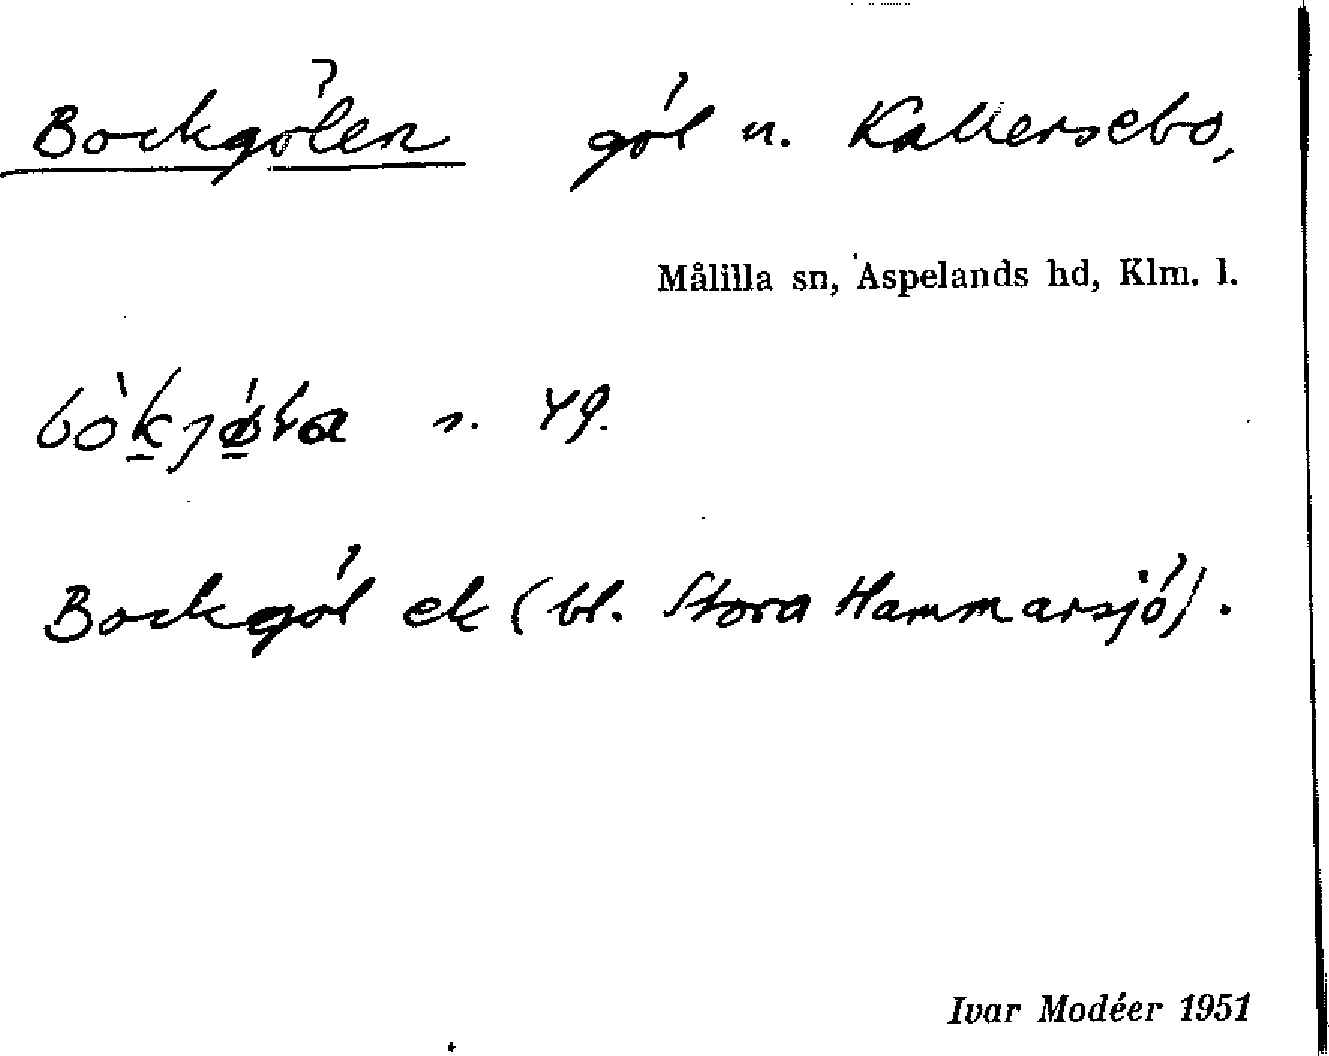 Bockgölen göl n. Kallersebo,
Målilla sn, Aspelands hd, Klm. l.
s. 49.
Bockgöl ek (bl. Stora Hammarsjö).
Ivar Modéer 1951